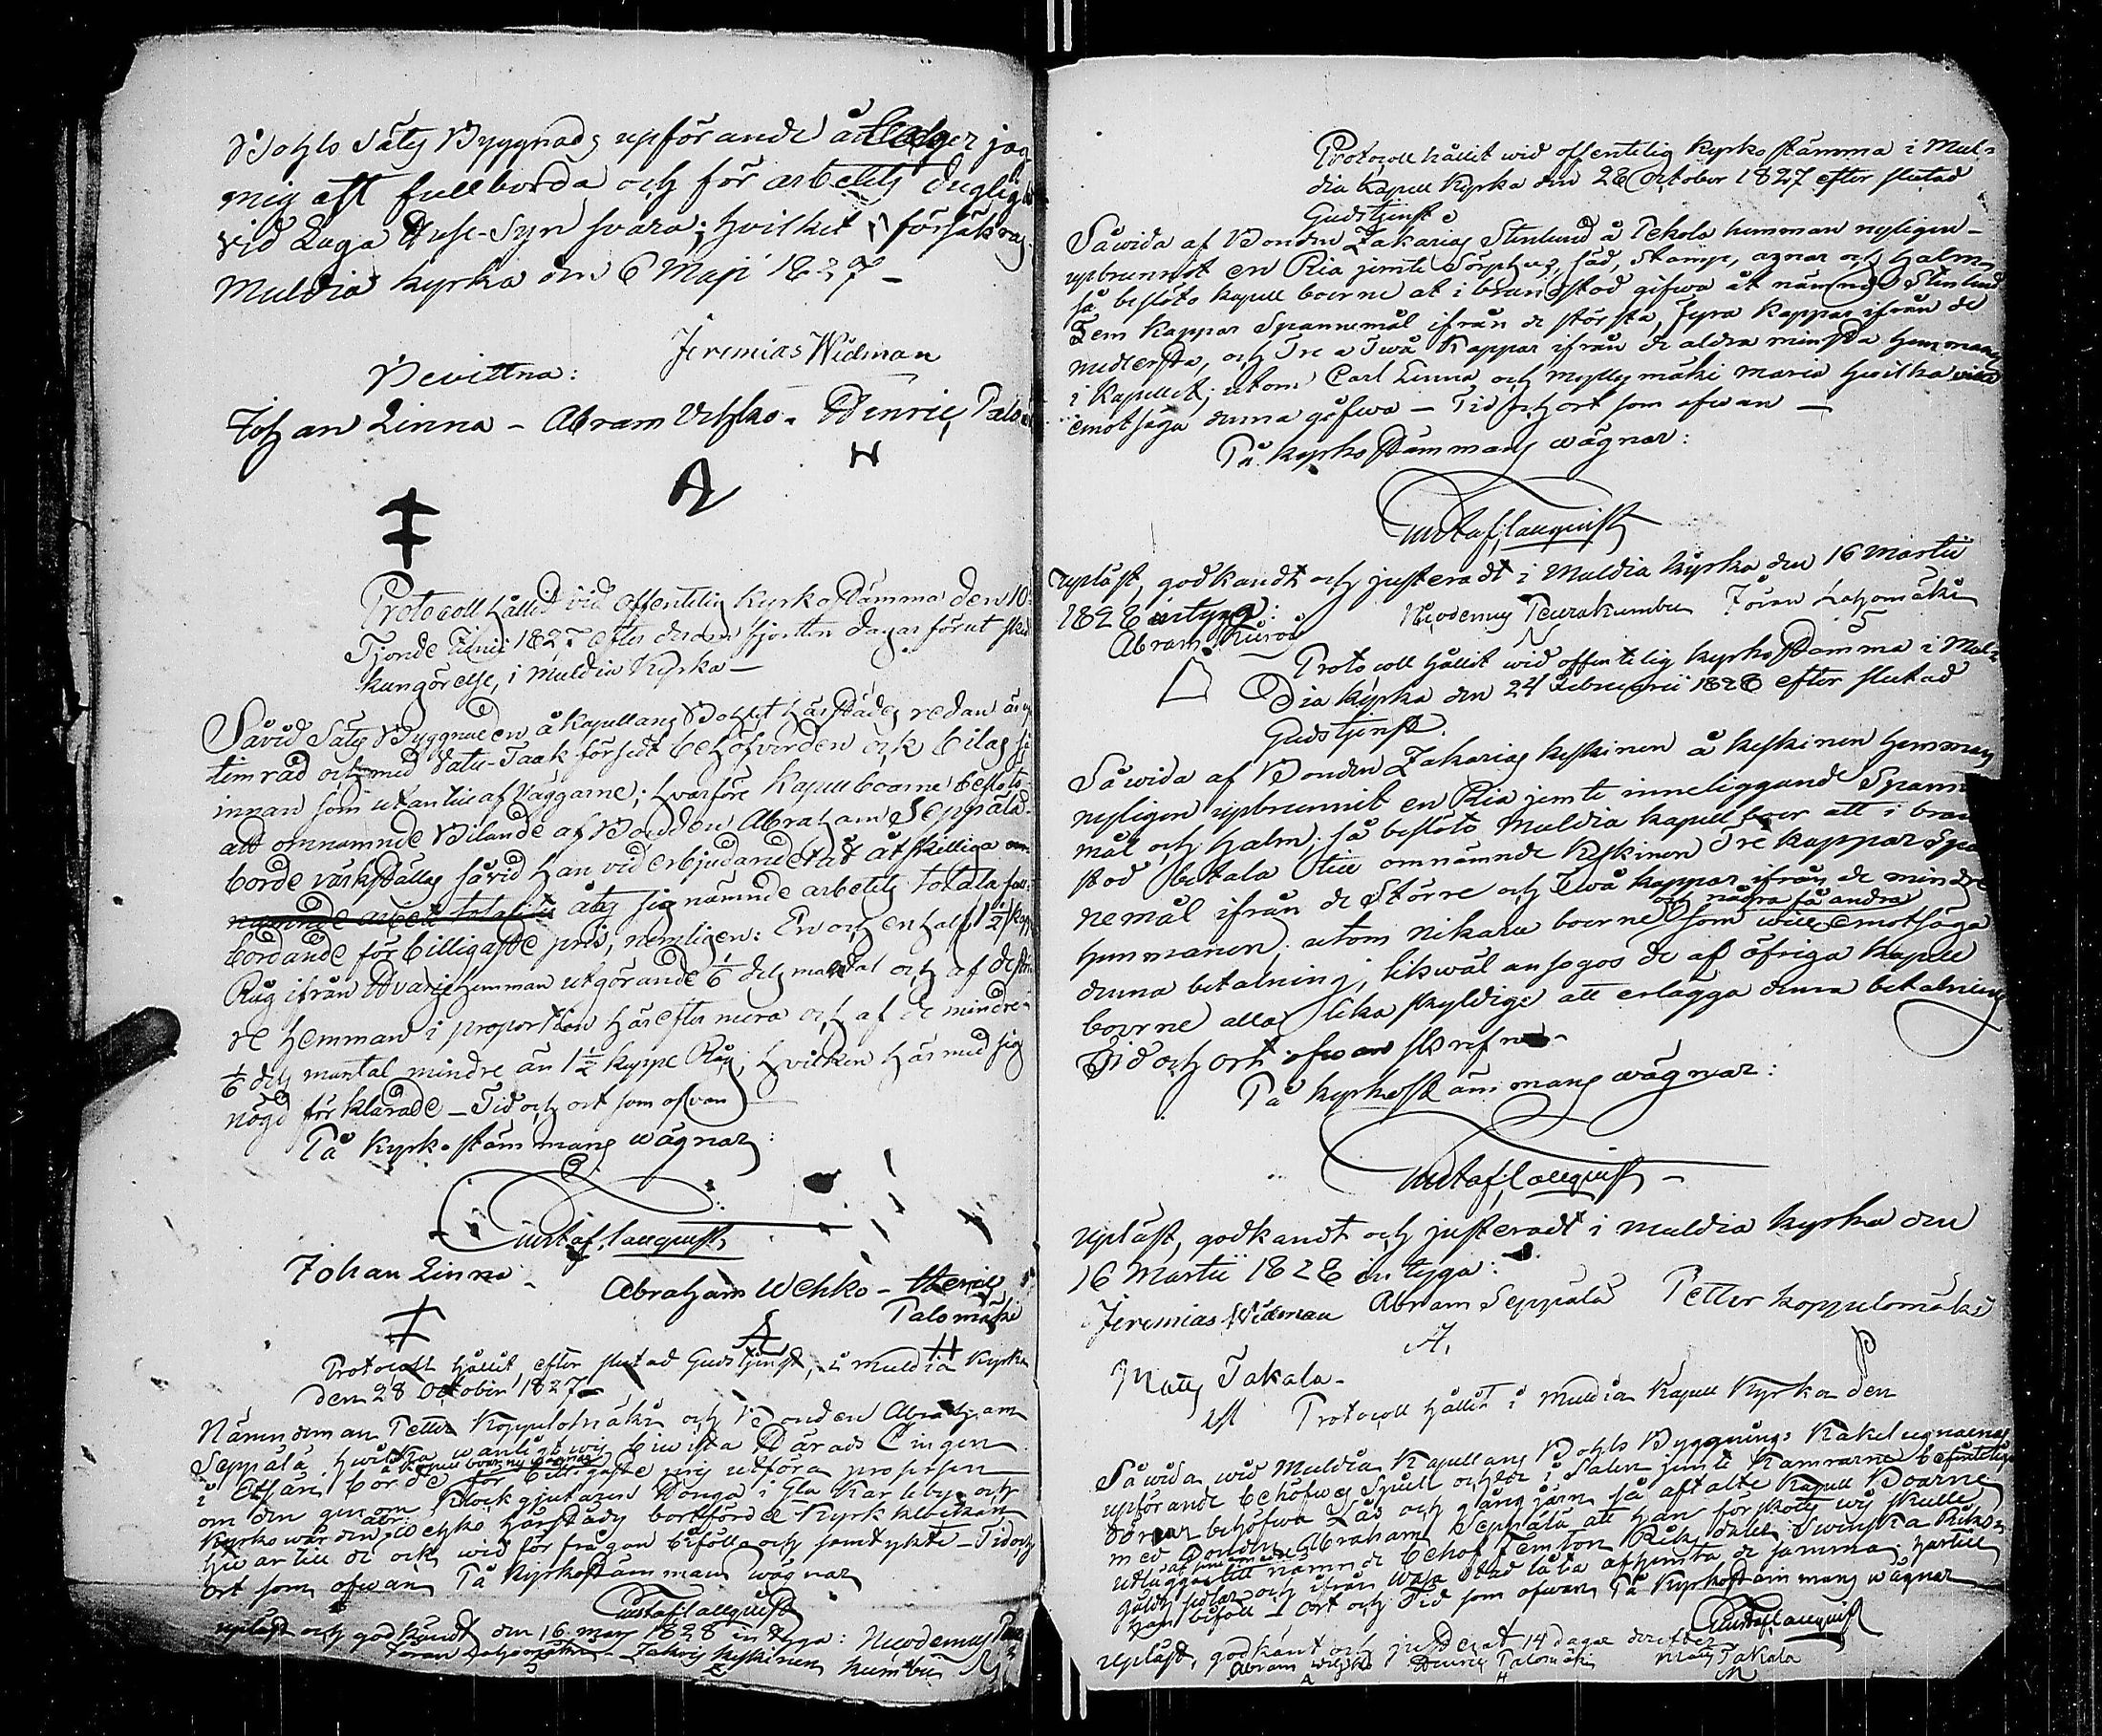 Bohls Sätes Byggnads upförande åtager jag
mig att fullborda och för arbetets duglighet
vid Laga Huse-Syn svara; hvilket försäkras.
Muldia kyrka den 6 Maji 1827 –
Jeremias Widman
Bevittna:
Johan Linna – Abram Vehko – Henric Palo
A H
Protocoll hållit vid offentelig Kyrkostämma den 10
Tjonde Junii 1827 efter derom fjorton dagar förut skedd
kungörelse, i Muldia Kyrka –
Såvid Sätes Byggnaden å Kapellans Bohlet härstädes redan är up
timrad och med Vatu-Taak försedt behöfver den ock bilas så
innan som utantill af Väggarne; hvarföre Kapellboarne beslöto
att omnämnde Bilande af Bonden Abraham Seppälä
borde värkställas såvid han vid erbjudandet åt åtskilliga om
nämnde arbetets totala åtog sig nämnde arbetets totala full
bordande för billigaste pris, nemligen: En och en half 1½ kappe
Råg ifrån Hvarje Hemman utgörande 1/6 dels mantal och af de stör
re Hemman i proportion härefter mera och af de mindre än
1/6 dels mantal mindre än 1½ kappe Råg; hvilken härmed sig
nögd förklarade – Tid och ort som ofvan
På Kyrkostämmans wägnar:
Gustaf Lauquist
Johan Linna – Abraham Wehko – Henric
Palomäki
A H
Protocoll hållit, efter slutad Gudstjenst, i Muldia Kyrka
den 28 October 1827 –
Nämndeman Petter Koppelomäki och Bonden Abraham
Seppälä, hwilka wanligtwis biwista Härads Tingen
å Kapell boernes wägnar
i Etsäri borde för billigaste pris utföra processen
om den genom Klockgjutaren Donga i Gla Karleby och
Kyrkowärden Abr: Wehko härstädes bortförde Kyrk klockan
hwartill de ock wid förfrågan biföllo och samtykte – Tid och
ort som ofwan På Kyrkostämmans wägnar
Gustaf Lauquist
upläst och godkändt den 16 mars 1828 intyga: Nicodemus Peura
Jöran Lahomäki – Zakris Keskinen kumbu N

Protocoll hållit wid offentelig kyrkostämma i Mul-
dia Kapell Kyrka den 28 October 1827 efter slutad
Gudstjenst
Såwida af Bonden Zakarias Stenlund å Tekola hemman nyligen
upbrunnit en Ria jemte Sörphus, säd, Stamp, agnar och halm
så beslöto kapell boerne at i brandstod gifwa åt nämnde Stenlund
Fem kappar Spannemål ifrån de största, Fyra kappar ifrån de
medlersta, och Tre a Twå Kappar ifrån de aldra minsta hemmanen
i Kapellet; utom Carl Linna och Myllymäki Maria hwilka wilja
emotsäga denna gåfwa – Tid och ort som ofwan –
På kyrkostämmans wägnar:
Gustaf Lauquist
upläst, godkändt och justeradt i Muldia Kyrka den 16 Martii
1828 intyga: Nicodemus Peurakumbu Jöran Lahomäki
Abram
N
Protocoll hållit wid offentelig kyrkostämma i Mul-
dia kyrka den 24 Februarii 1828 efter slutad
Gudstjenst.
Såwida af Bonden Zakarias Keskinen å Keskinen hemman
nyligen upbrunnit en Ria jemte inneliggande Spanne
mål och halm, så beslöto Muldia kapell boer att i brand
stod betala till omnämnde Keskinen Tre kappar Span
nemål ifrån de Större och Twå kappar ifrån de mindre
och några få andra
hemmanen, utom Nikara boerne som wille emotsäga
denna betalning; likwäl ansågos de af öfriga Kapell
boerne alla lika skyldige att erlägga denna betalning
Tid och ort ofwan skrefne –
På kyrkostämmans wägnar:
Gustaf Lauquist
upläst, godkändt och justeradt i Muldia kyrka den
16 Martii 1828 intyga:
Jeremias Widman Abram Seppälä Petter Koppelomäki
A. P
Matts Takala –
M Protocoll hållit i Muldia Kapell Kyrka den
Såwida wid Muldia Kapellans Bohls Byggnings Kakelugnarnas
upförande behöfwes Spiell och i Salen jemte Kamrarne befinteliga
Dörrar behöfwa Lås och gångjärn så aftalte Kapell Boarne
med Bonden Abraham Seppälä att han förskotts wis skulle
utlägga till nämnde behof Femton Riksdaler Swenska Riks
gälds sedlar och ifrån Wasa Stad låta afhemta de samma hartill
han biföll – Ort och Tid som ofwan På Kyrkostämmans wägnar
Gustaf Lauquist
upläst, godkänt och justerat 14 dagar derefter
Abram Wehko Henric Palomäki Matts Takala
A H M